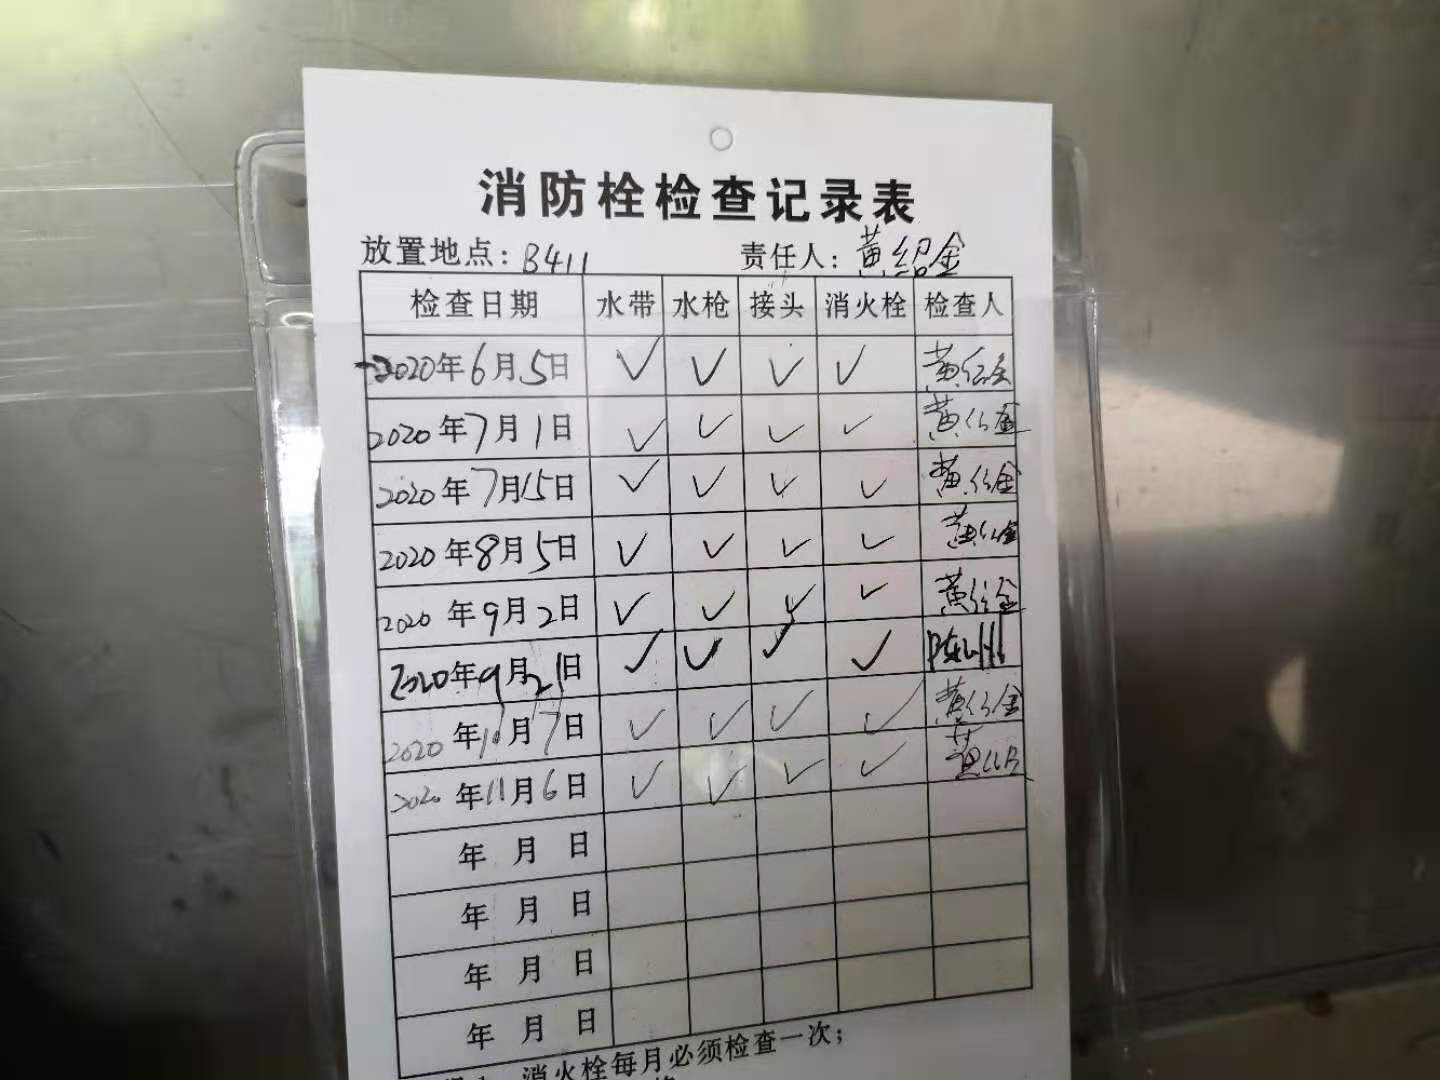 消防栓检查记录表
放置地点：B411 责任人：黄绍金
检查日期 水带 水枪 接头 消火栓 检查人
2020年6月5日 ✓ ✓ ✓ ✓ 黄绍金
2020年7月1日 ✓ ✓ ✓ ✓ 黄绍金
2020年7月15日 ✓ ✓ ✓ ✓ 黄绍金
2020年8月5日 ✓ ✓ ✓ ✓ 黄绍金
2020年9月2日 ✓ ✓ ✓ ✓ 黄绍金
2020年9月21日 ✓ ✓ ✓ ✓
2020年10月7日 ✓ ✓ ✓ ✓ 黄绍金
2020年11月6日 ✓ ✓ ✓ ✓
年 月 日
年 月 日
年 月 日
年 月 日
消火栓每月必须检查一次；